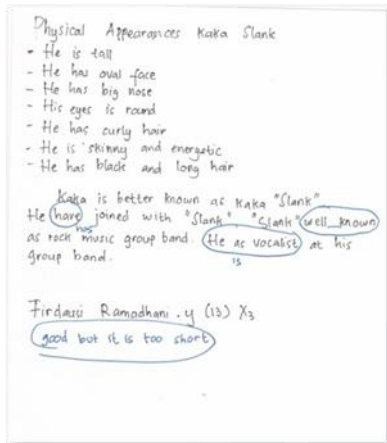 Physical Appearances Kaka Slank
- He is tall
- He has oval face
- He has big nose
- His eyes is round
- He has curly hair
- He is skinny and energetic
- He has black and long hair
Kaka is better known as Kaka "Slank"
He have joined with "Slank" "Slank" well_known
has
as rock music group band. He as vocalist at his
is
group band.
Firdausi Ramadhani . y (13) X3
good but it is too short